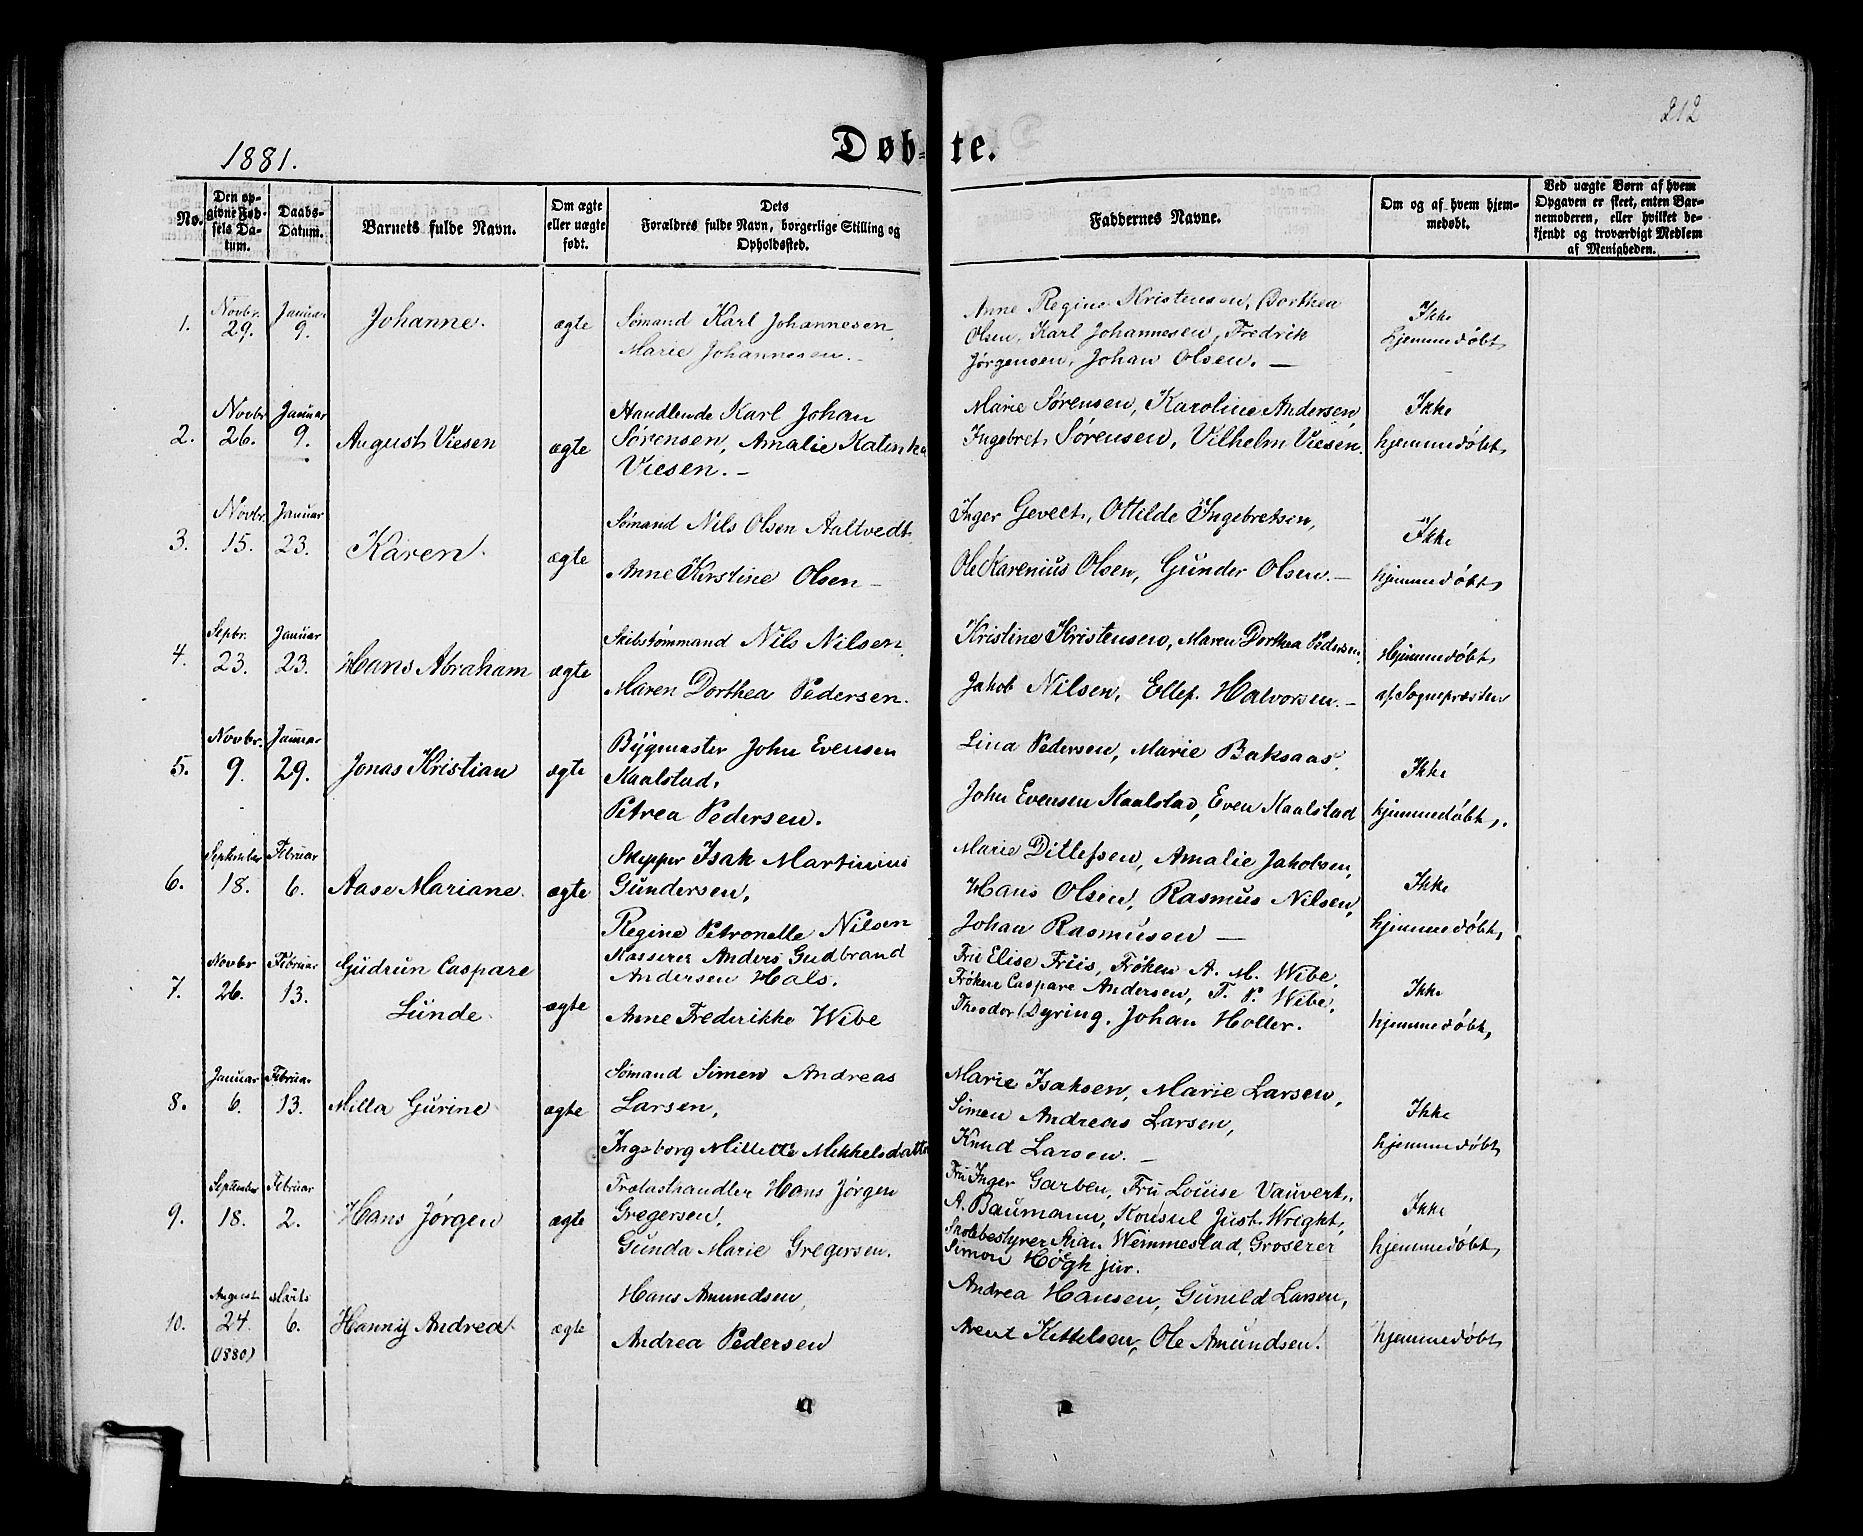 212
1881.
Døbte.
No.
Den op-
givne Fød-
sels Da-
tum.
Daabs-
Datum.
Barnets fulde Navn.
Om ægte
eller uægte
født.
Dets
Forældres fulde Navn, borgerlige Stilling og
Opholdssted.
Faddernes Navne.
Om og af hvem hjem-
medøbt.
Ved uægte Børn af hvem
Opgaven er skeet, enten Bar-
nemoderen, eller hvilket be-
kjendt og troværdigt Medlem
af Menigheden.
1.
Novbr.
29.
Januar
9.
Johanne.
ægte
Sømand Karl Johannesen,
Marie Johannesen. –
Anne Regine Kristensen, Dorthea
Olsen, Karl Johannesen, Fredrik
Jørgensen, Johan Olsen. –
Ikke
hjemmedøbt,
2.
Novbr
26.
Januar
9.
August Viesen
ægte
Handlende Karl Johan
Sørensen, Amalie Katinka
Viesen. –
Marie Sørensen, Karoline Andersen,
Ingebret Sørensen, Vilhelm Viesen.
Ikke
hjemmedøbt,
3.
Novbr.
15.
Januar
23.
Karen.
ægte
Sømand Nils Olsen Aaltvedt
Anne Kirstine Olsen –
Inger Gevelt, Ottilde Ingebretsen,
Ole Karenius Olsen, Gunder Olsen. –
Ikke
hjemmedøbt,
4.
Sepbr.
23.
Januar
23.
Hans Abraham
ægte
Skibstømmand Nils Nilsen,
Maren Dorthea Pedersen.
Kristine Kristensen, Maren Dorthea Pedersen,
Jakob Nilsen, Ellef Halvorsen. –
Hjemmedøbt
af Sognepræsten
5.
Novbr.
9.
Januar
29.
Jonas Kristian
ægte
Bygmester John Evensen
Kaalstad,
Petrea Pedersen.
Lina Pedersen, Marie Baksaas,
John Evensen Kaalstad, Even Kaalstad
Ikke
hjemmedøbt,.
6.
September
18.
Februar
6.
Aase Mariane.
ægte
Skipper Isak Martinius
Gundersen,
Regine Petronelle Nilsen
Marie Ditlefsen, Amalie Jakobsen,
Hans Olsen, Rasmus Nilsen,
Johan Rasmusen –
Ikke
hjemmedøbt,
7.
Novbr
26.
Februar
13.
Gudrun Caspare
Lunde.
ægte
Kasserer Anders Gudbrand
Andersen Hals.
Anne Frederikke Wibe
Fru Elise Friis, Frøken A. M. Wibe,
Frøken Caspare Andersen, T. P. Wibe,
Theodor Dyring, Johan Holler.
Ikke
hjemmedøbt,
8.
Januar
6.
Februar
13.
Milla Gurine.
ægte
Sømand Simen Andreas
Larsen,
Ingeborg Millette Mikkelsdatter
Marie Isaksen, Marie Larsen,
Simen Andreas Larsen,
Knud Larsen. –
Ikke
hjemmedøbt
9.
September
18.
Februar
2.
Hans Jørgen
ægte
Trælasthandler Hans Jørgen
Gregersen,
Gunda Marie Gregersen.
Fru Inger Garben, Fru Louise Vauvert,
A. Baumann, Konsul Just Wright,
Skolebestyrer Stian Wemmestad, Groserer
Simon Høegh jur.
Ikke
hjemmedøbt,
10.
August
24.
(1880)
Marts
6.
Hanny Andrea.
ægte
Hans Amundsen,
Andrea Pedersen
Andrea Hansen, Gunild Larsen,
Arent Kittelsen, Ole Amundsen.
hjemmedøbt,